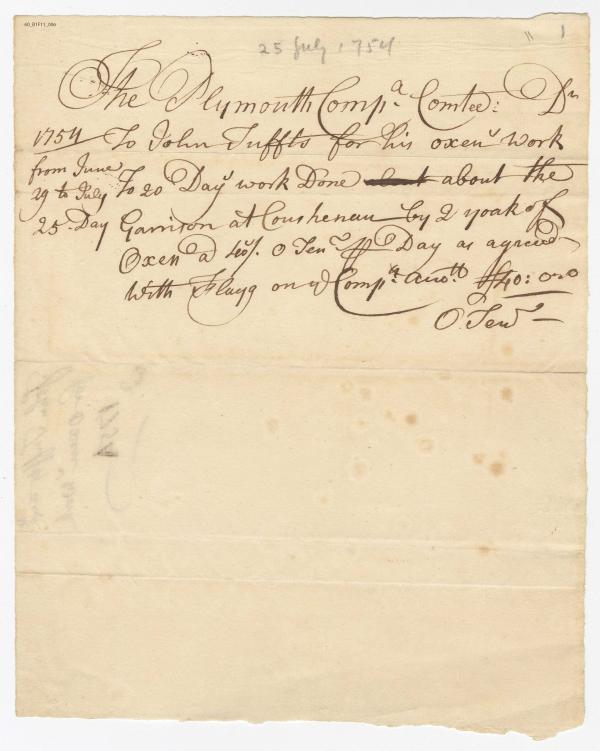 40_B1F11_06o
25 July 1754
1
The Plymouth Compa. Comtee: Dr
1754 To John Tuffts for his oxens work
from June 29 to July 25. Day
To 20 Days work Done about the
Garrison at Cousheneau by 2 yoak of
Oxen a 40/. O Tenr. ⅌ Day as agreed
With Flagg on ye Compa. Acott. £40:0=0
O. Tenr
1754